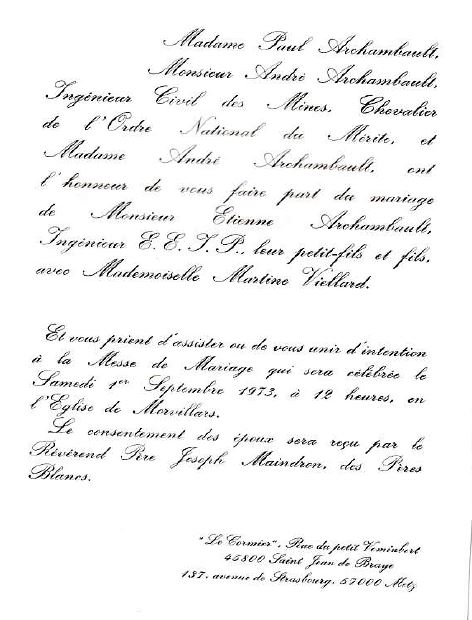 Madame Paul Archambault,
Monsieur André Archambault,
Ingénieur Civil des Mines, Chevalier
de l'Ordre National du Mérite, et
Madame André Archambault, ont
l'honneur de vous faire part du mariage
de Monsieur Etienne Archambault,
Ingénieur E.E.I.P., leur petit-fils et fils,
avec Mademoiselle Martine Viellard.
Et vous prient d'assister ou de vous unir d'intention
à la Messe de Mariage qui sera célébrée le
Samedi 1er Septembre 1973, à 12 heures, en
l'Église de Morvillars.
Le consentement des époux sera reçu par le
Révérend Père Joseph Maindron, des Pères
Blancs.
"Le Cormier", Rue du petit Vomimbert
45800 Saint Jean de Braye
137, avenue de Strasbourg, 57000 Metz